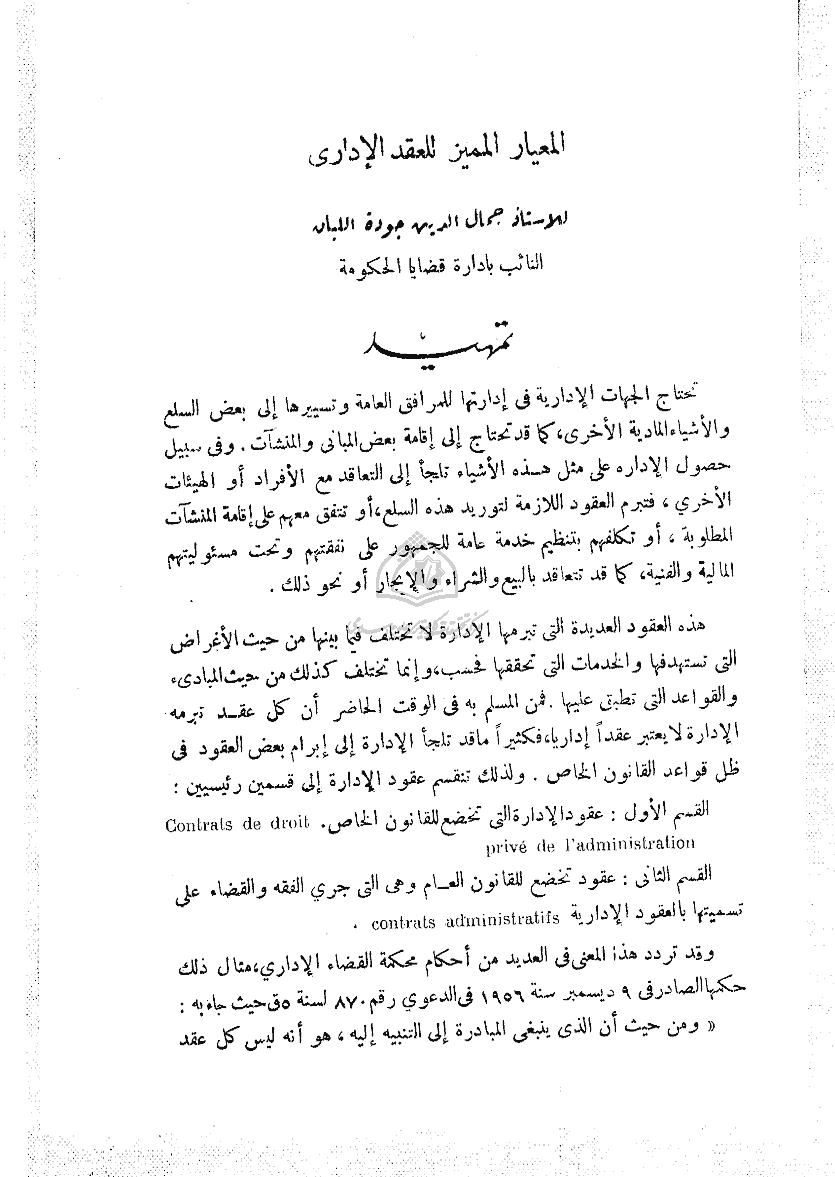 المعيار المميز للعقد الإدارى
للاستاذ جمال الدين جودة اللبان
النائب بادارة قضايا الحكومة
تمهيد
تحتاج الجهات الإدارية فى إدارتها للمرافق العامة وتسييرها إلى بعض السلع
والأشياء المادية الأخرى، كما قد تحتاج إلى إقامة بعض المبانى والمنشآت . وفى سبيل
حصول الإداره على مثل هذه الأشياء تلجأ إلى التعاقد مع الأفراد أو الهيئات
الأخري ، فتبرم العقود اللازمة لتوريد هذه السلع، أو تتفق معهم على إقامة المنشآت
المطلوبة ، أو تكلفهم بتنظيم خدمة عامة للجمهور على نفقتهم وتحت مسئوليتهم
المالية والفنية، كما قد تتعاقد بالبيع والشراء والإيجار أو نحو ذلك .
هذه العقود العديدة التى تبرمها الإدارة لا تختلف فيما بينها من حيث الأغراض
التى تستهدفها والخدمات التى تحققها فحسب، وإنما تختلف كذلك من حيث المبادىء
والقواعد التى تطبق عليها . فمن المسلم به فى الوقت الحاضر أن كل عقد تبرمه
الإدارة لا يعتبر عقداً إداريا، فكثيراً ماقد تلجأ الإدارة إلى إبرام بعض العقود فى
ظل قواعد القانون الخاص . ولذلك تنقسم عقود الإدارة إلى قسمين رئيسيين :
القسم الأول : عقود الإدارة التى تخضع للقانون الخاص. Contrats de droit
privé de l'administration
القسم الثانى : عقود تخضع للقانون العام وهى التى جري الفقه والقضاء على
تسميتها بالعقود الإدارية contrats administratifs .
وقد تردد هذا المعنى فى العديد من أحكام محكمة القضاء الإداري، مثال ذلك
حكمها الصادر فى ٩ ديسمبر سنة ١٩٥٦ فى الدعوي رقم ٨٧٠ لسنة ٥ق حيث جاء به :
« ومن حيث أن الذى ينبغى المبادرة إلى التنبيه إليه ، هو أنه ليس كل عقد